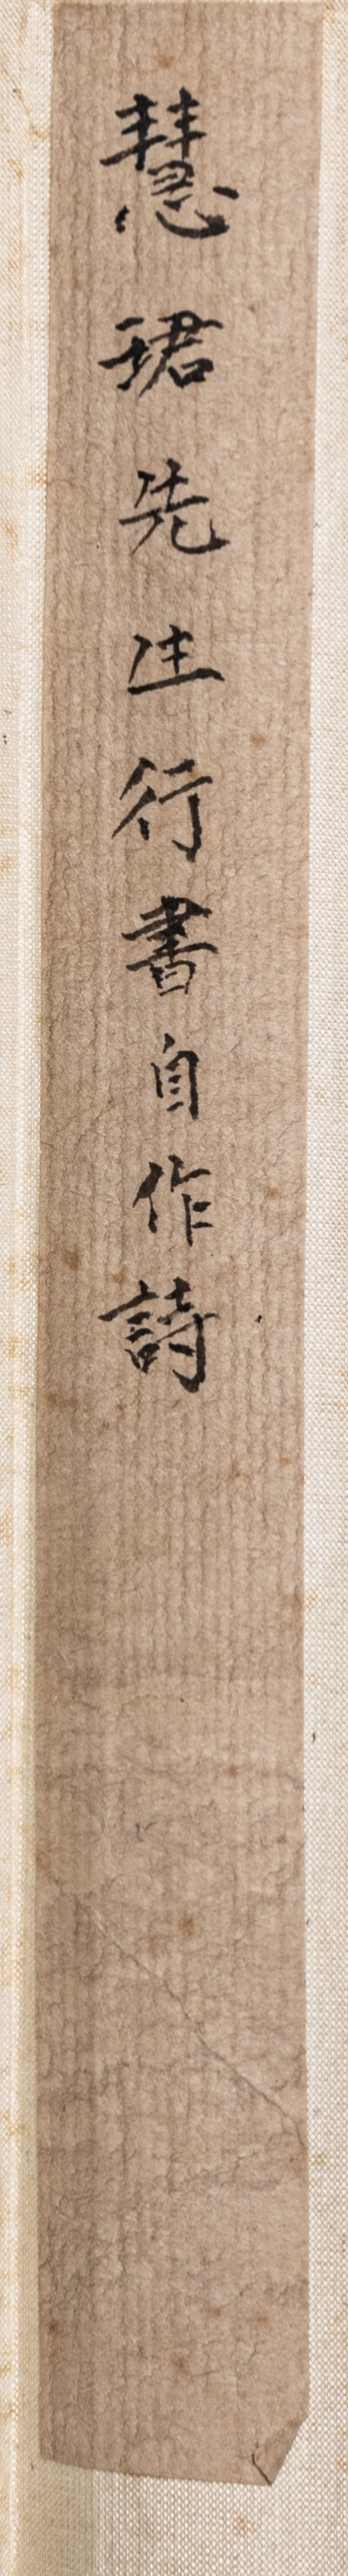 慧珺先生行書自作詩